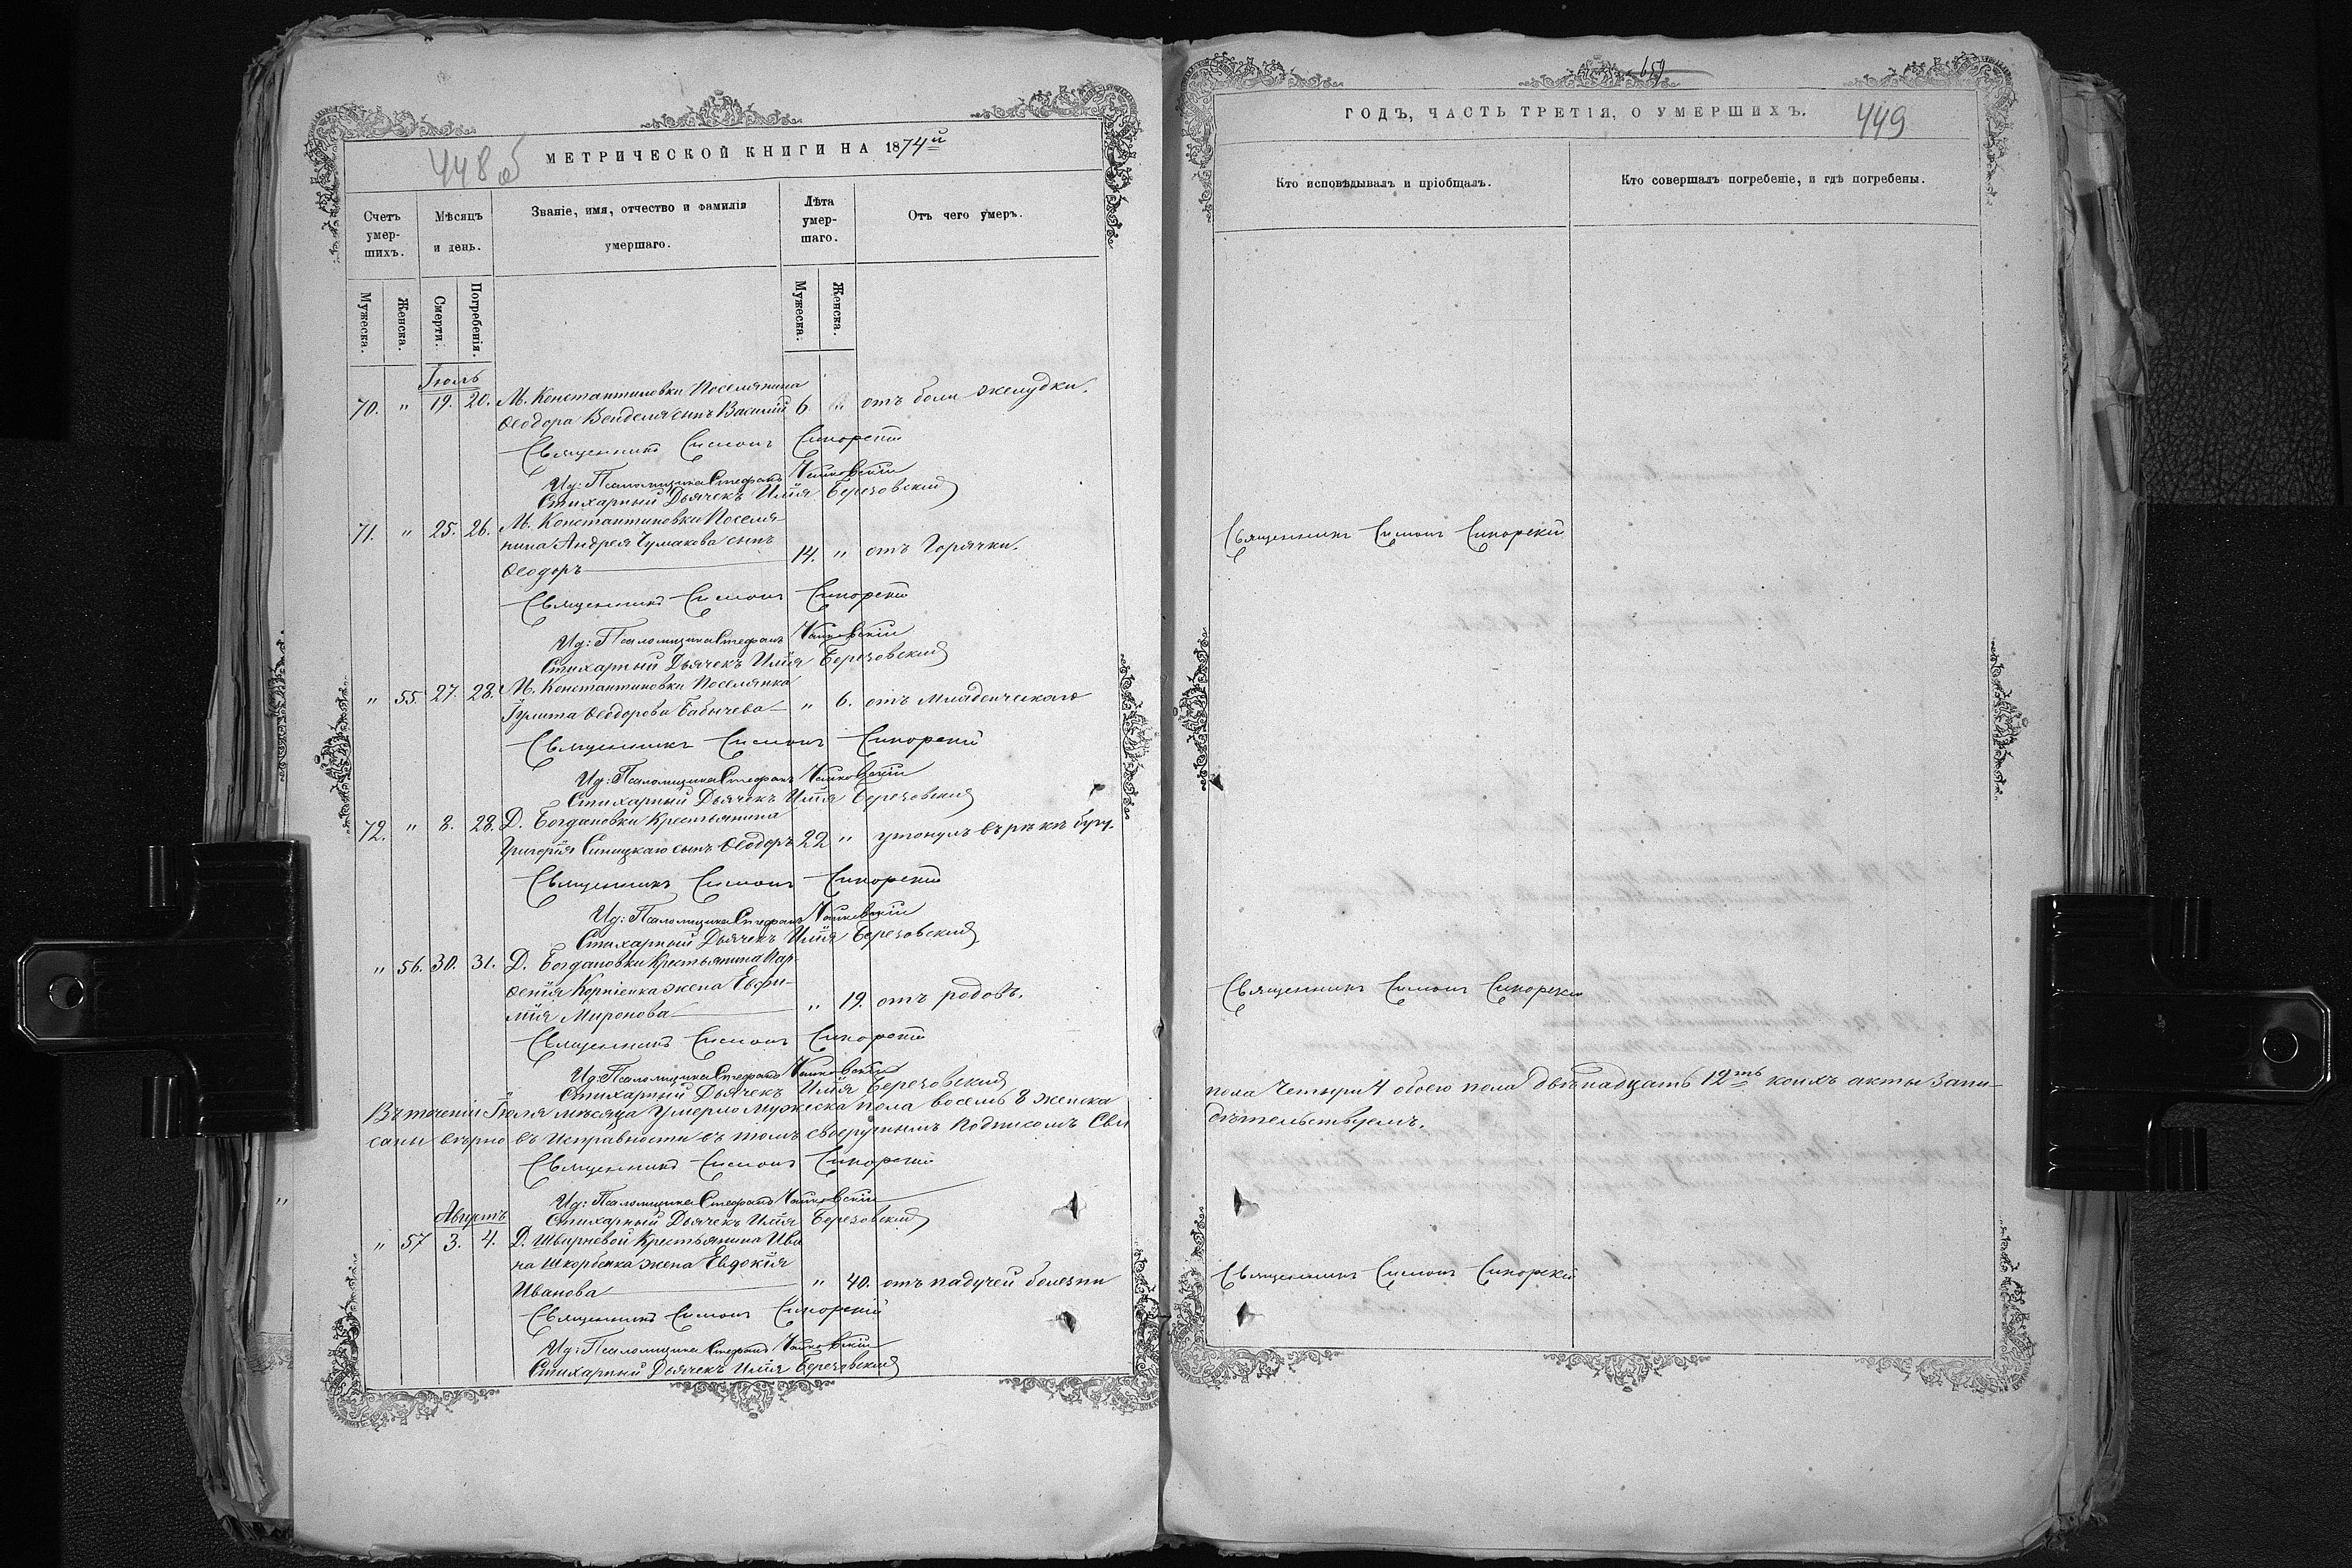 448 об
МЕТРИЧЕСКОЙ КНИГИ НА 1874й
Счетъ умер-шихъ.
Мѣсяцъ и день.
Званіе, имя, отчество и фамилія умершаго.
Лѣта умер-шаго.
Отъ чего умеръ.
Мужеска.
Женска.
Смерти.
Погребенія.
Мужеска.
Женска.
Іюль
70. " 19. 20. М. Константиновки Поселянина
Ѳеодора Венделя сынъ Василій 6. " отъ боли желудки.
Священникъ Симонъ Сикорскій
Ид: Псаломщика Стефанъ Чайковскій
Стихарный Дьячекъ Илія Березовскій
71. " 25. 26. М. Константиновки Поселя-
нина Андрея Чумакова сынъ
Ѳеодоръ 14. " отъ Горячки.
Священникъ Симонъ Сикорскій
Ид: Псаломщика Стефанъ Чайковскій
Стихарный Дьячекъ Илія Березовскій
" 55. 27. 28. М. Константиновки Поселянка
Іулита Ѳеодорова Бабичева " 6. отъ Младенческаго
Священникъ Симонъ Сикорскій
Ид: Псаломщика Стефанъ Чайковскій
Стихарный Дьячекъ Илія Березовскій
72. " 8. 28. Д. Богдановки Крестьянина
Григорія Синицкаго сынъ Ѳеодоръ 22 " утонулъ въ рѣкѣ бугу.
Священникъ Симонъ Сикорскій
Ид: Псаломщика Стефанъ Чайковскій
Стихарный Дьячекъ Илія Березовскій
" 56. 30. 31. Д. Богдановки Крестьянина Пар-
ѳенія Корніенка жена Евфи-
мія Миронова " 19. отъ родовъ.
Священникъ Симонъ Сикорскій
Ид: Псаломщика Стефанъ Чайковскій
Стихарный Дьячекъ Илія Березовскій
Въ теченіи Іюля мѣсяца Умерло Мужеска пола восемь 8 женска
саны вѣрно въ Исправности въ томъ своеручнымъ Подписомъ Сви
Священникъ Симонъ Сикорскій
Ид: Псаломщика Стефанъ Чайковскій
Стихарный Дьячекъ Илія Березовскій
Августъ
" 57 3. 4. Д. Швыревой Крестьянина Ива
на Шкорбенка жена Евдокія
Иванова " 40. отъ падучей болезни
Священникъ Симонъ Сикорскій
Ид: Псаломщика Стефанъ Чайковскій
Стихарный Дьячекъ Илія Березовскій
ГОДЪ, ЧАСТЬ ТРЕТІЯ, О УМЕРШИХЪ.
449
Кто исповѣдывалъ и пріобщалъ.
Кто совершалъ погребеніе, и гдѣ погребены.
Священникъ Симонъ Сикорскій
Священникъ Симонъ Сикорскій
пола Четыри 4 обоего пола двѣнадцать 12ть коихъ акты Запи-
дѣтельствуемъ.
Священникъ Симонъ Сикорскій